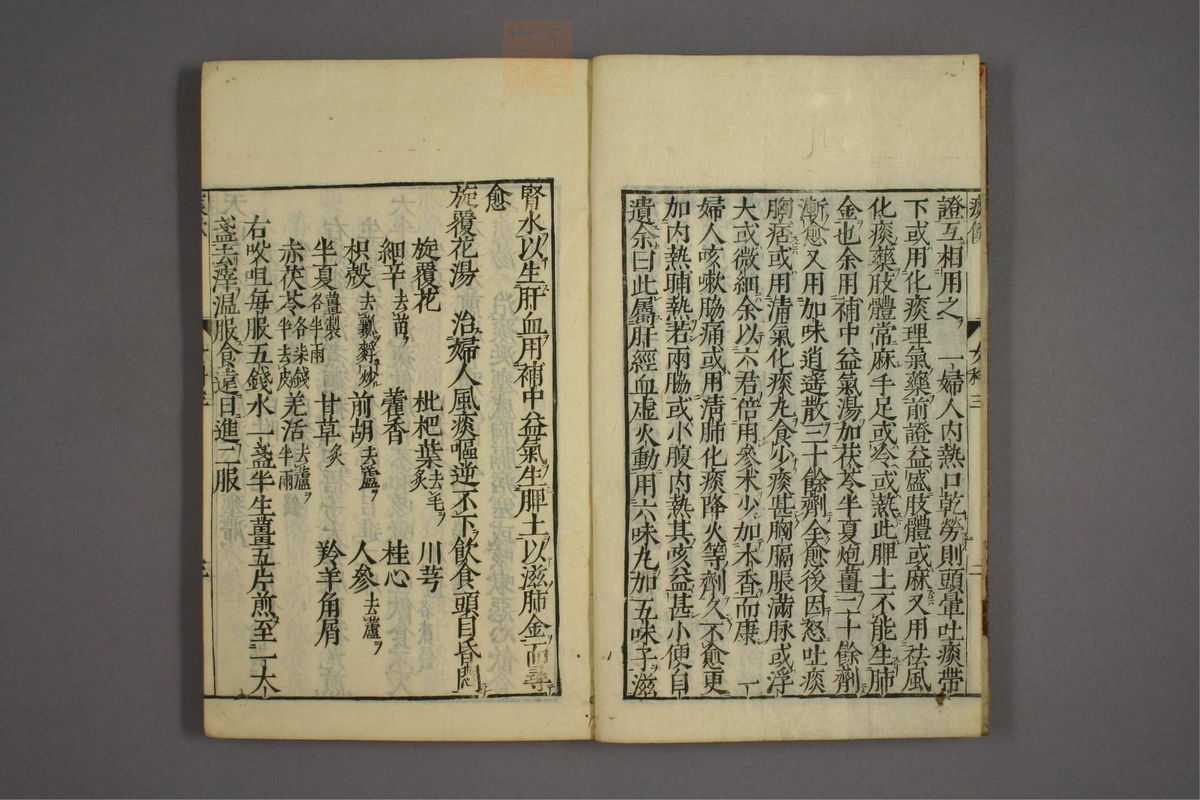 證互相用之一婦人内熱口乾勞則頭暈吐痰帶
下或用化痰理氣藥前證益盛肢體或麻又用祛風
化痰藥肢體常麻手足或冷或熱此脾土不能生肺
金也余用補中益氣湯加茯苓半夏炮薑二十餘劑
漸愈又用加味逍遙散三十餘劑全愈後因怒吐痰
胸痞或用清氣化痰丸食少痰甚胸膈脹滿脉或浮
大或微細余以六君倍用參术少加木香而康一
婦人咳嗽脇痛或用清肺化痰降火等劑久不愈更
加内熱晡熱若兩脇或小腹内熱其咳益甚小便自
遺余曰此屬肝經血虚火動用六味丸加五味子滋
女科三
二
腎水以生肝血用補中益氣生脾土以滋肺金而尋
愈
旋覆花湯 治婦人風痰嘔逆不下飲食頭目昏悶
旋覆花 枇杷葉去毛炙 川芎
細辛去苗 藿香 桂心
枳殻去瓤麩炒 前胡去蘆 人參去蘆
半夏薑製各半兩 甘草炙 羚羊角屑
赤茯苓各柒錢半去皮 羌活去蘆半兩
右㕮咀毎服五錢水一盞半生薑五片煎至一大
盞去滓温服食遠日進二服